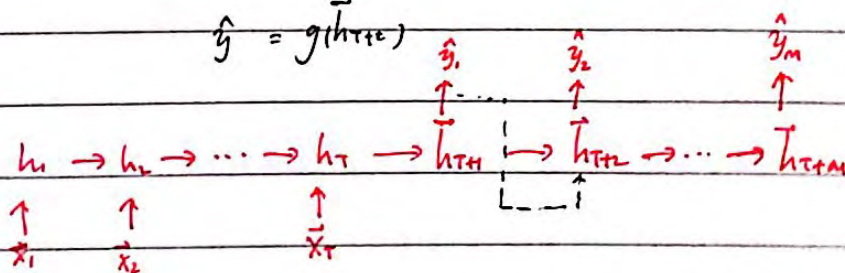 ŷ = g(h⃗_{T+t})
ŷ₁ ŷ₂ ŷ_M
h₁ → h₂ → ⋯ → h_T → h⃗_{T+1} → h⃗_{T+2} → ⋯ → h⃗_{T+M}
x⃗₁ x⃗₂ x⃗_T